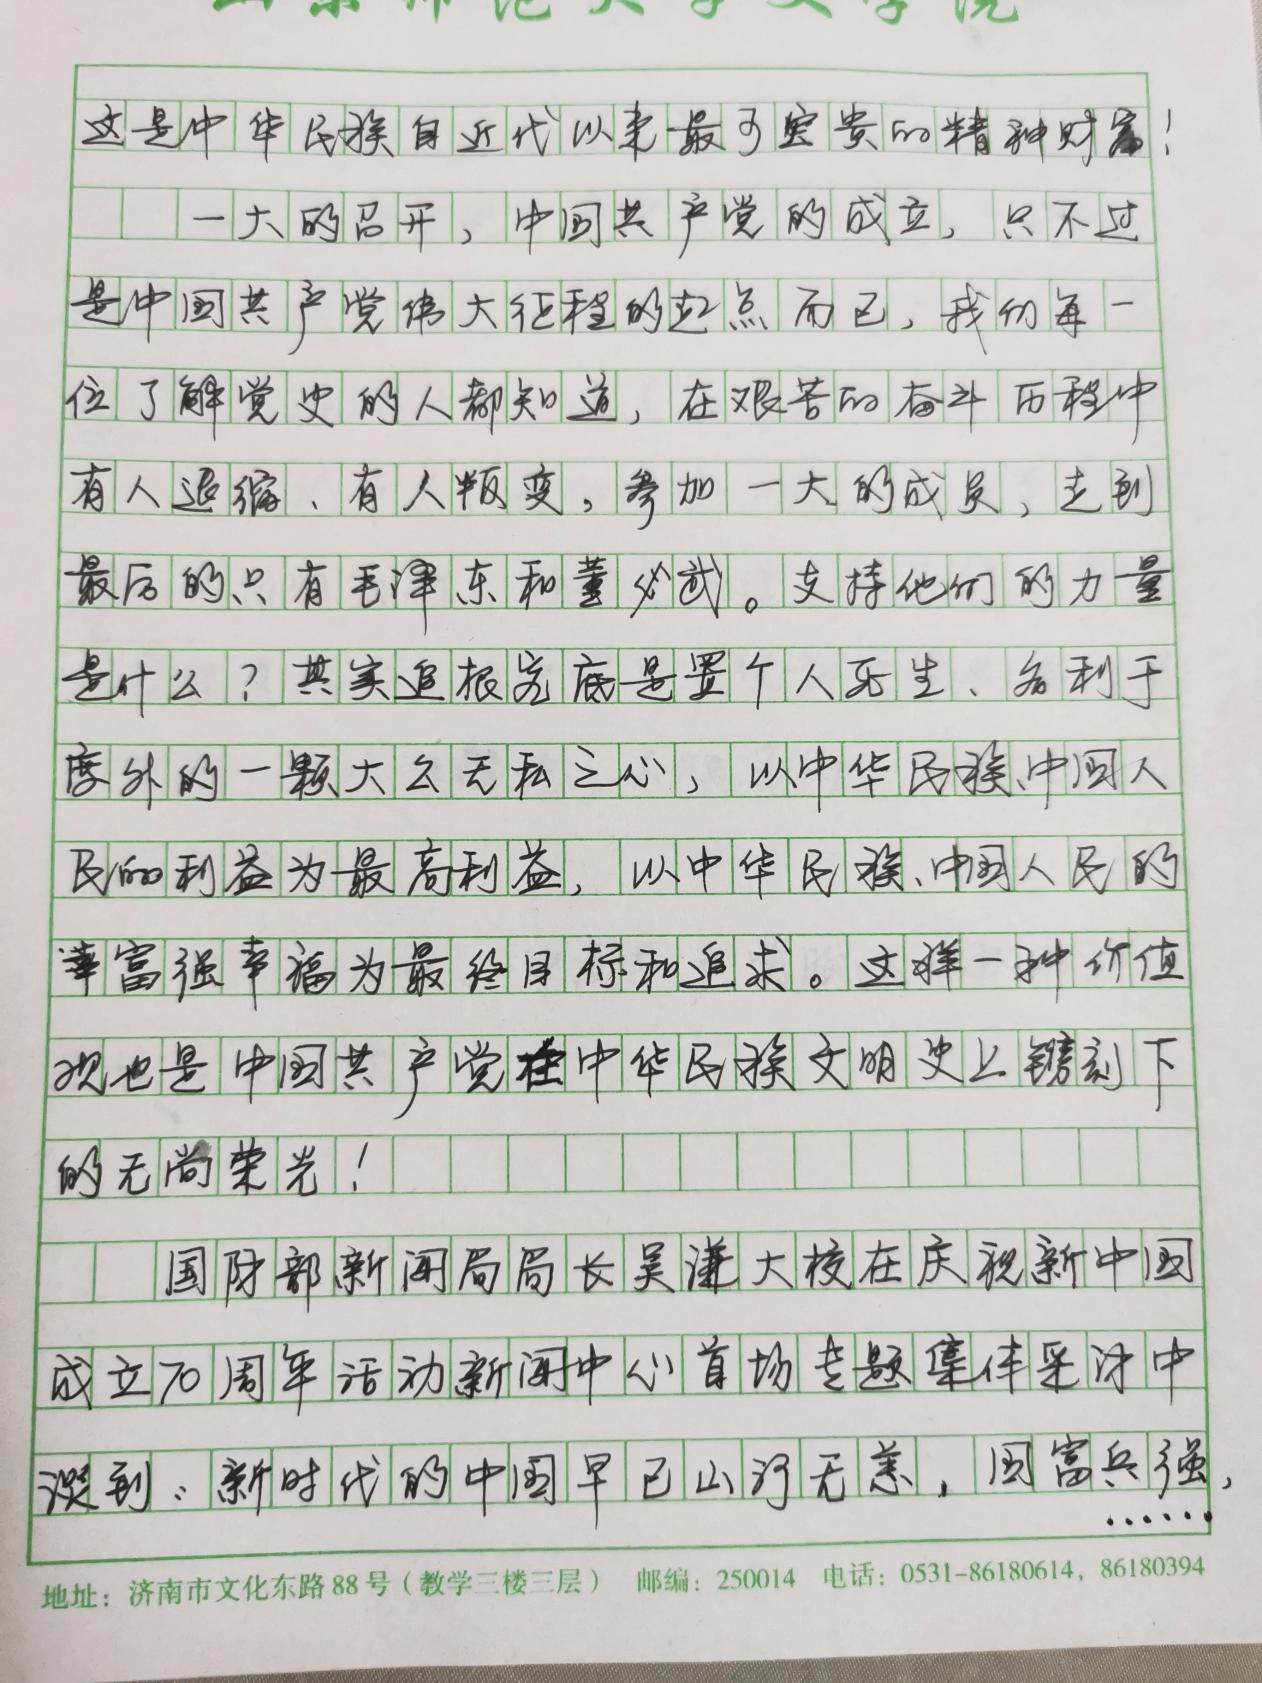 山东师范大学文学院
这是中华民族自近代以来最可宝贵的精神财富!
一大的召开,中国共产党的成立,只不过
是中国共产党伟大征程的起点而已,我们每一
位了解党史的人都知道,在艰苦的奋斗历程中
有人退缩、有人叛变,参加一大的成员,走到
最后的只有毛泽东和董必武。支持他们的力量
是什么?其实追根究底是置个人死生、名利于
度外的一颗大公无私之心,以中华民族、中国人
民的利益为最高利益,以中华民族、中国人民的
富强幸福为最终目标和追求。这样一种价值
观也是中国共产党在中华民族文明史上镌刻下
的无尚荣光!
国防部新闻局局长吴谦大校在庆祝新中国
成立70周年活动新闻中心首场专题集体采访中
谈到:新时代的中国早已山河无恙,国富兵强,
......
地址:济南市文化东路88号(教学三楼三层) 邮编:250014 电话:0531-86180614,86180394